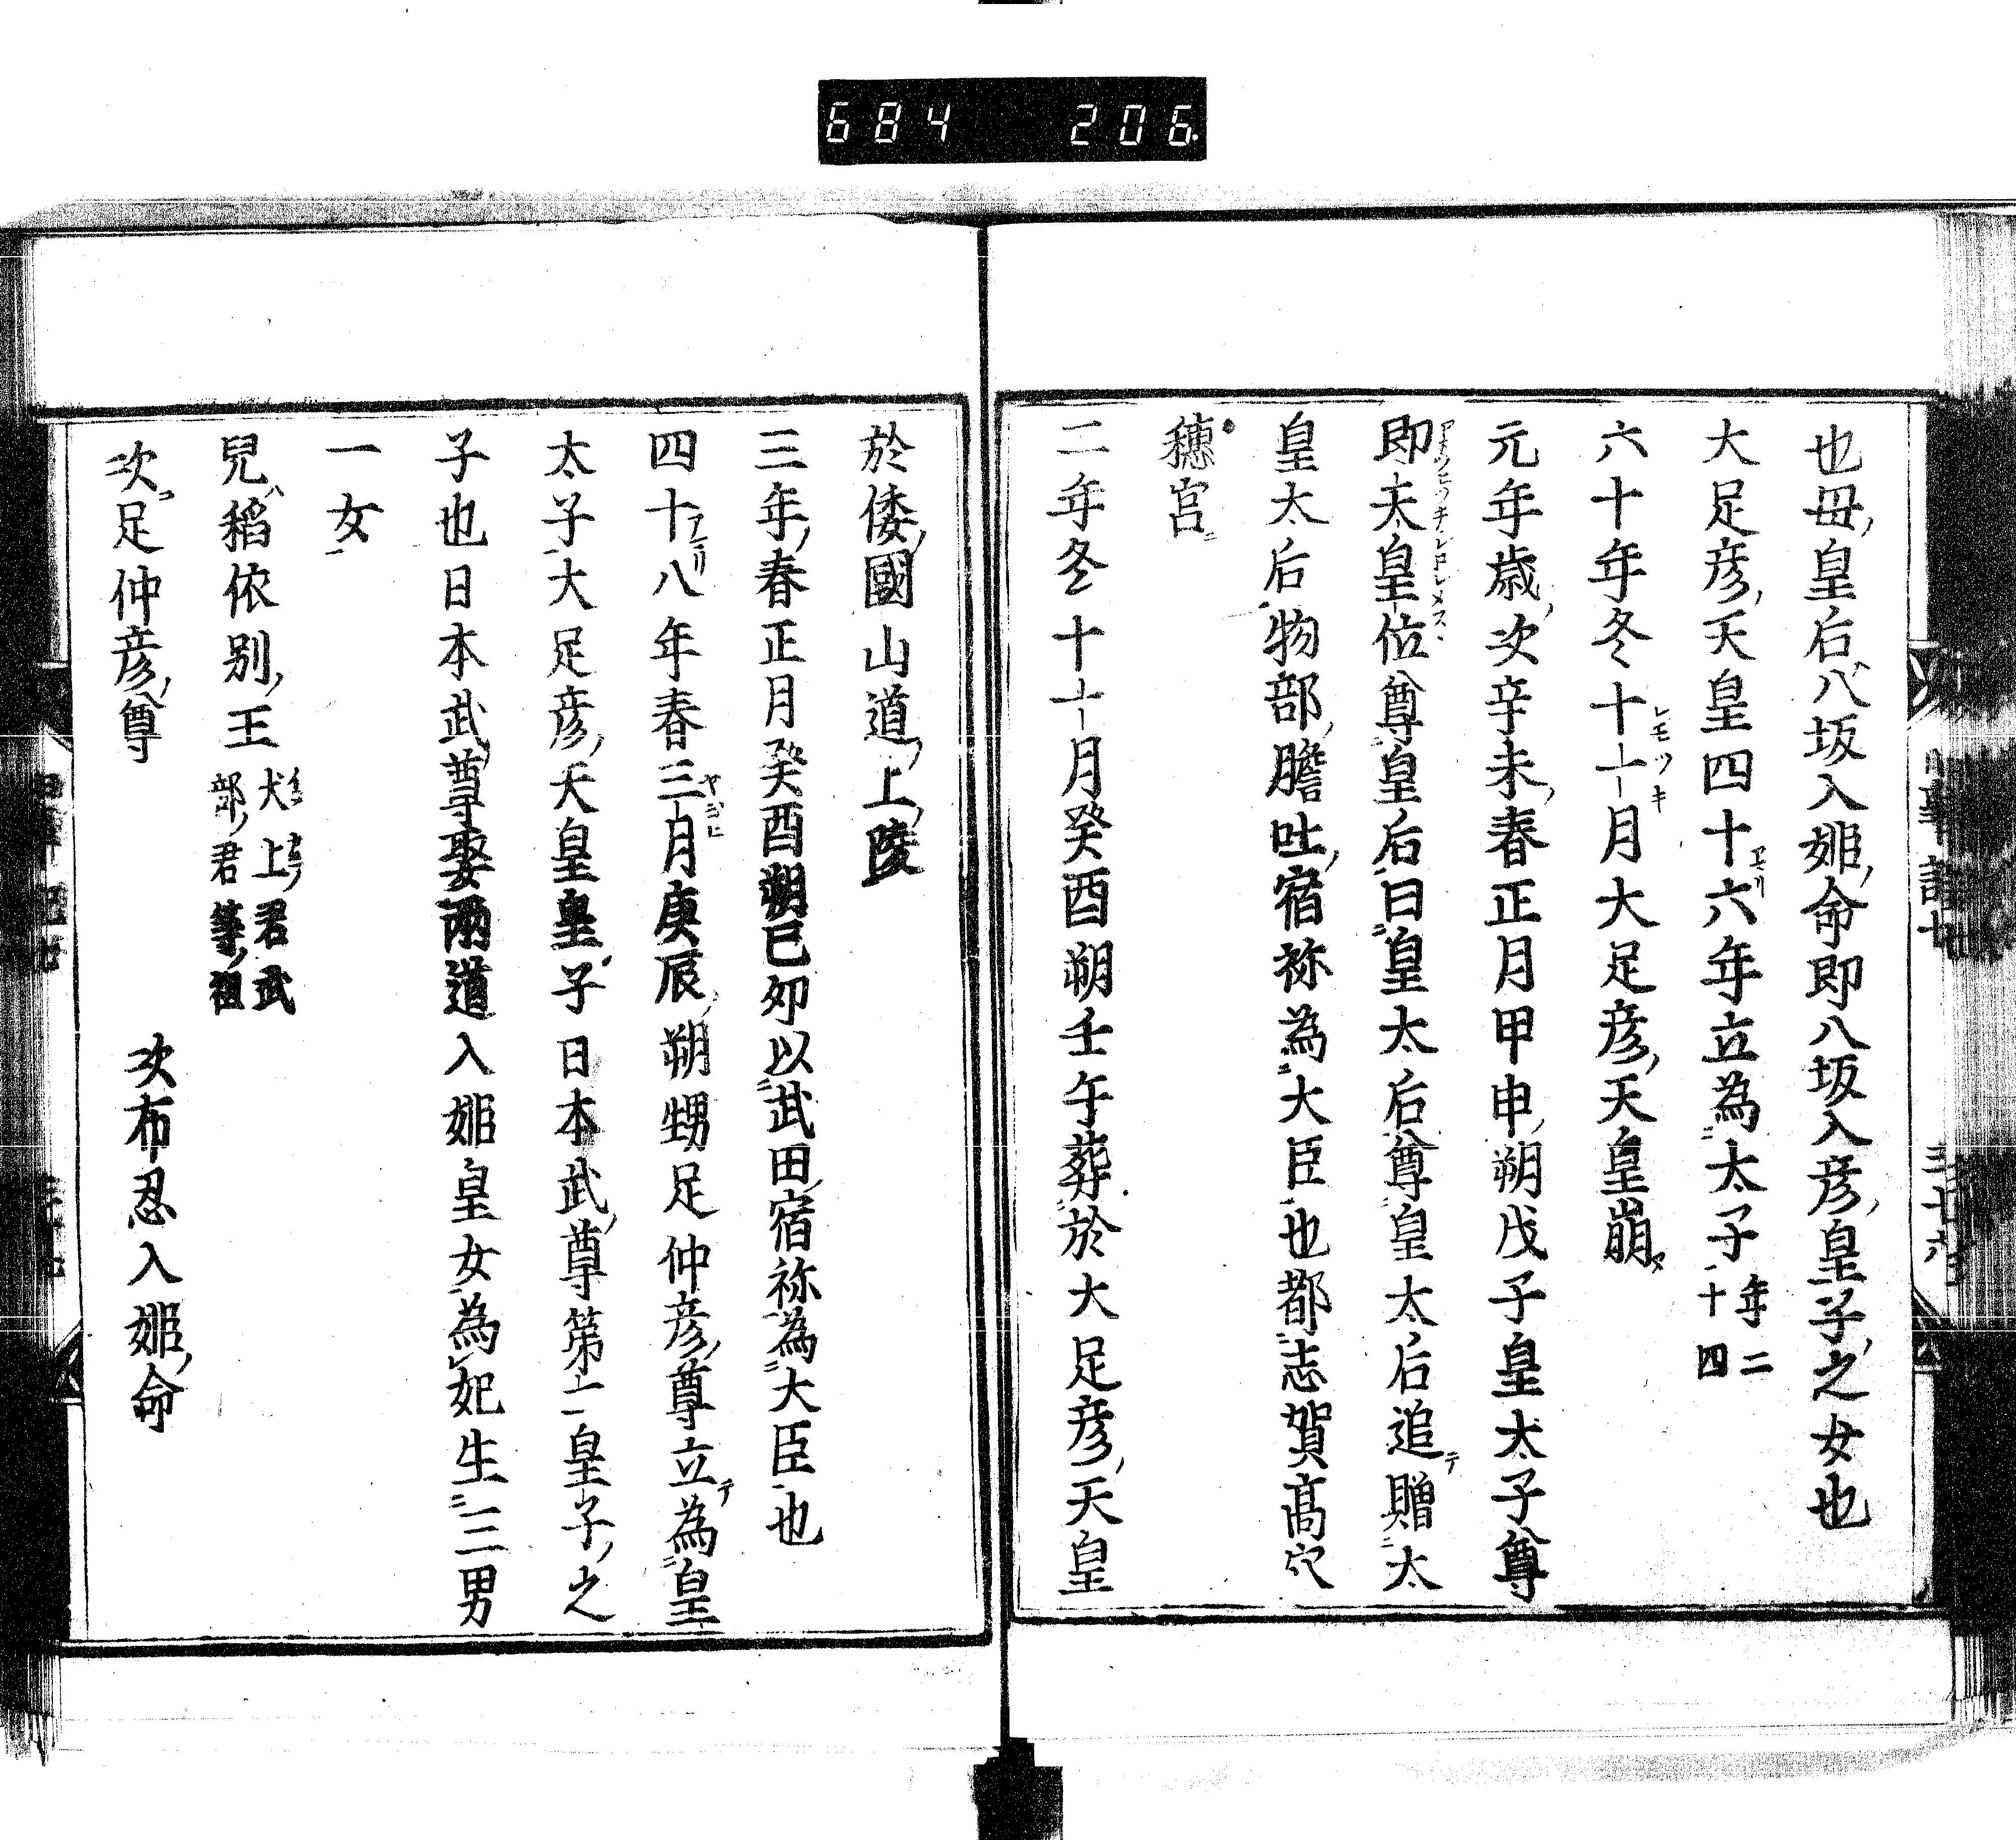 684 206
也母皇后八坂入姬命即八坂入彦皇子之女也
大足彦天皇四十六年立為太子年二十四
六十年冬十一月大足彦天皇崩
元年歳次辛未春正月甲申朔戊子皇太子尊
即天皇位尊皇后曰皇太后尊皇太后追贈太
皇太后物部膽吐宿祢為大臣也都志賀髙穴
穗宮
二年冬十一月癸酉朔壬午葬於大足彦天皇
於倭國山道上陵
三年春正月癸酉朔己卯以武田宿祢為大臣也
四十八年春三月庚辰朔甥足仲彦尊立為皇
太子大足彦天皇皇子日本武尊第二皇子之
子也日本武尊娶兩道入姬皇女為妃生三男
一女
兒稻依別王犬上君武部君等祖
次足仲彦尊 次布忍入姬命